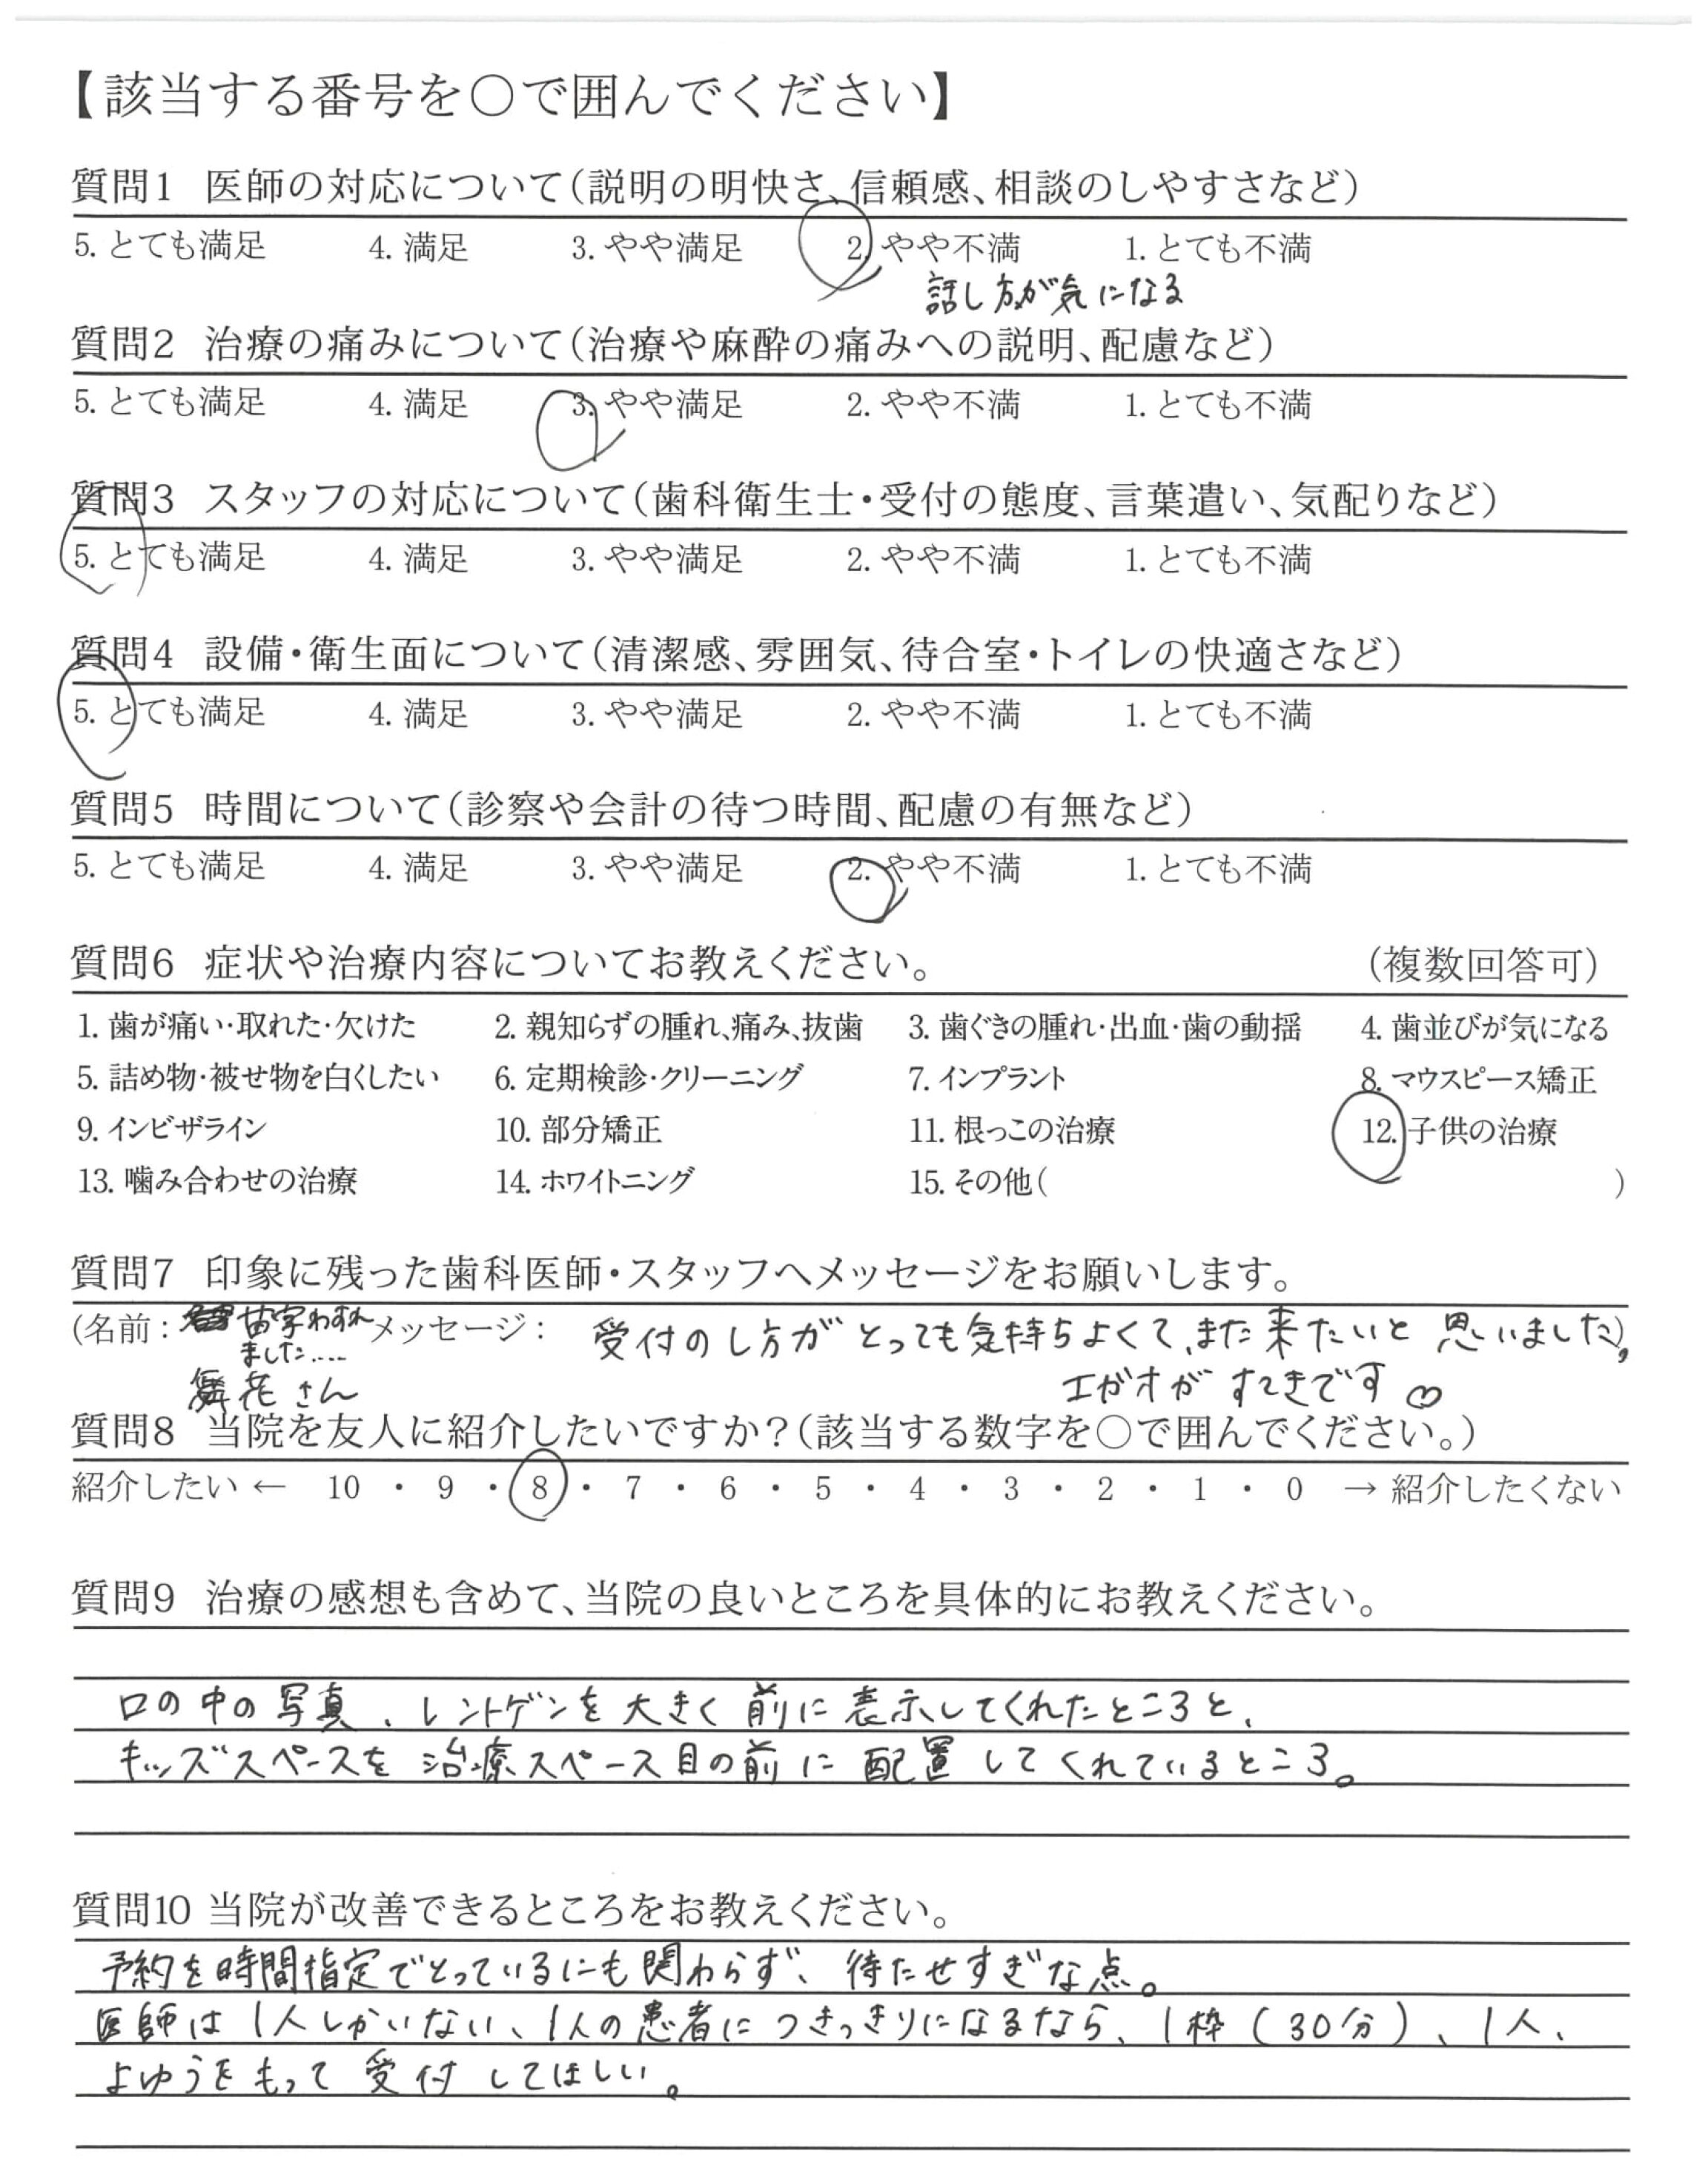 【該当する番号を○で囲んでください】
質問1 医師の対応について(説明の明快さ、信頼感、相談のしやすさなど)
5. とても満足 4. 満足 3. やや満足 2. やや不満 1. とても不満
話し方が気になる
質問2 治療の痛みについて(治療や麻酔の痛みへの説明、配慮など)
5. とても満足 4. 満足 3. やや満足 2. やや不満 1. とても不満
質問3 スタッフの対応について(歯科衛生士・受付の態度、言葉遣い、気配りなど)
5. とても満足 4. 満足 3. やや満足 2. やや不満 1. とても不満
質問4 設備・衛生面について(清潔感、雰囲気、待合室・トイレの快適さなど)
5. とても満足 4. 満足 3. やや満足 2. やや不満 1. とても不満
質問5 時間について(診察や会計の待つ時間、配慮の有無など)
5. とても満足 4. 満足 3. やや満足 2. やや不満 1. とても不満
質問6 症状や治療内容についてお教えください。 (複数回答可)
1. 歯が痛い・取れた・欠けた 2. 親知らずの腫れ、痛み、抜歯 3. 歯ぐきの腫れ・出血・歯の動揺 4. 歯並びが気になる
5. 詰め物・被せ物を白くしたい 6. 定期検診・クリーニング 7. インプラント 8. マウスピース矯正
9. インビザライン 10. 部分矯正 11. 根っこの治療 12. 子供の治療
13. 噛み合わせの治療 14. ホワイトニング 15. その他( )
質問7 印象に残った歯科医師・スタッフへメッセージをお願いします。
(名前: 苗字わすれ メッセージ: 受付のし方がとっても気持ちよくて、また来たいと思いました)。
ました....
舞花さん エガオがすてきです♡
質問8 当院を友人に紹介したいですか?(該当する数字を○で囲んでください。)
紹介したい ← 10 ・ 9 ・ 8 ・ 7 ・ 6 ・ 5 ・ 4 ・ 3 ・ 2 ・ 1 ・ 0 → 紹介したくない
質問9 治療の感想も含めて、当院の良いところを具体的にお教えください。
口の中の写真、レントゲンを大きく前に表示してくれたところと、
キッズスペースを治療スペース目の前に配置してくれているところ。
質問10 当院が改善できるところをお教えください。
予約を時間指定でとっているにも関わらず、待たせすぎな点。
医師は1人しかいない、1人の患者につきっきりになるなら、1枠(30分)、1人、
よゆうをもって受付してほしい。